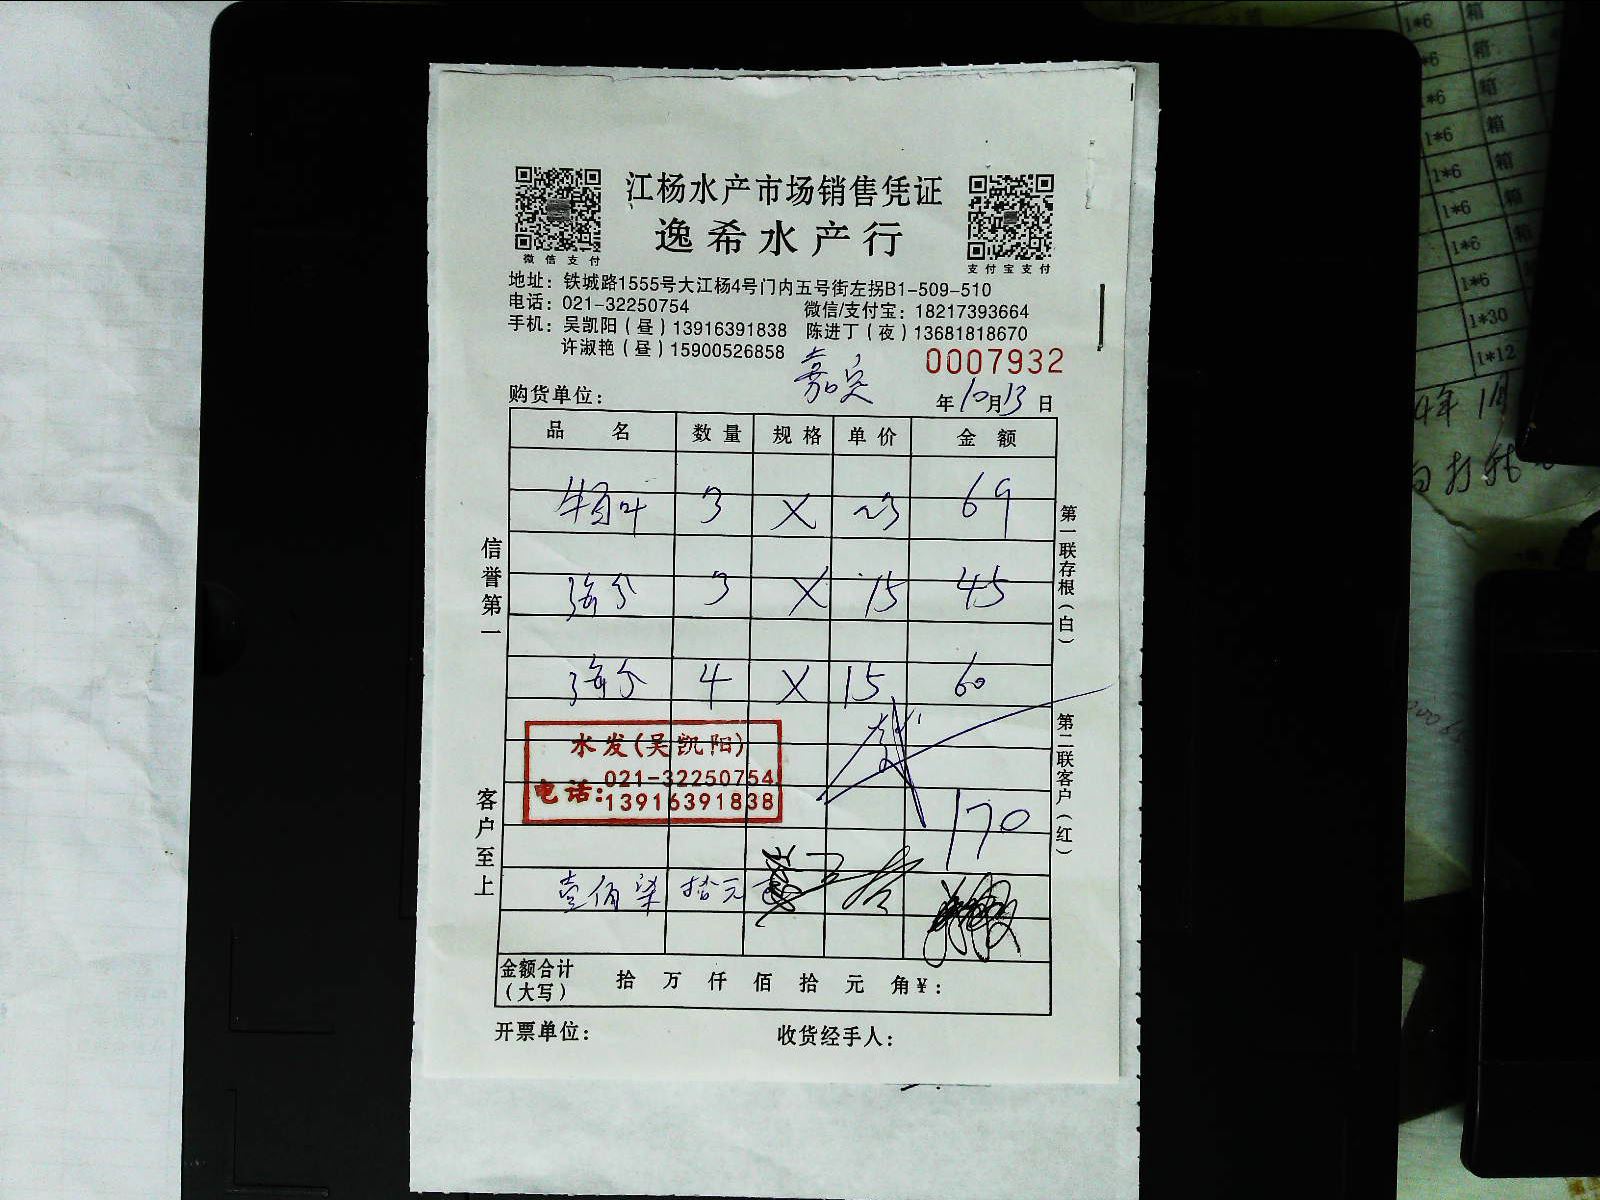 江杨水产市场销售凭证
逸希水产行
微信支付
支付宝支付
地址：铁城路1555号大江杨4号门内五号街左拐B1-509-510
电话：021-32250754 微信/支付宝：18217393664
手机：吴凯阳（昼）13916391838 陈进丁（夜）13681818670
许淑艳（昼）15900526858 0007932
购货单位： 嘉定 年10月13日
品名 数量 规格 单价 金额
牛百叶 3 X 23 69
3 X 15 45
4 X 15 60
水发(吴凯阳)
电话:021-32250754
13916391838
170
壹佰柒拾元
金额合计（大写） 拾 万 仟 佰 拾 元 角 ¥：
开票单位： 收货经手人：
信誉第一
客户至上
第一联存根（白）
第二联客户（红）
1*6 箱
*6 箱
*6 箱
1*6 箱
1*6 箱
1*6 箱
1*6 箱
1*6
1*30
1*12